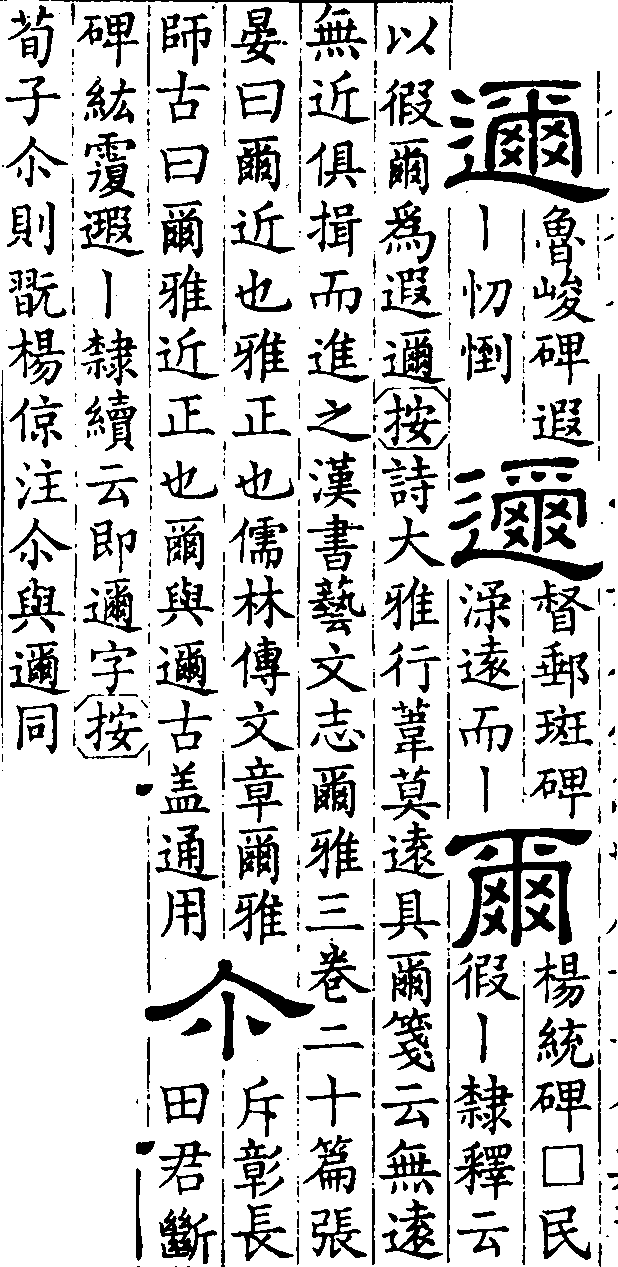 邇
魯峻碑遐
丨忉
邇
督郵斑碑
渘遠而丨
爾
楊統碑□民
徦丨隸釋云
以徦爾爲遐邇按詩大雅行葦莫遠具爾箋云無遠
無近俱揖而進之漢書藝文志爾雅三卷二十篇張
晏曰爾近也雅正也儒林傳文章爾雅
師古曰爾雅近正也爾與邇古盖通用
尒
斥彰長
田君斷
碑紘覆遐丨隸續云即邇字按
荀子尒則翫楊倞注尒與邇同